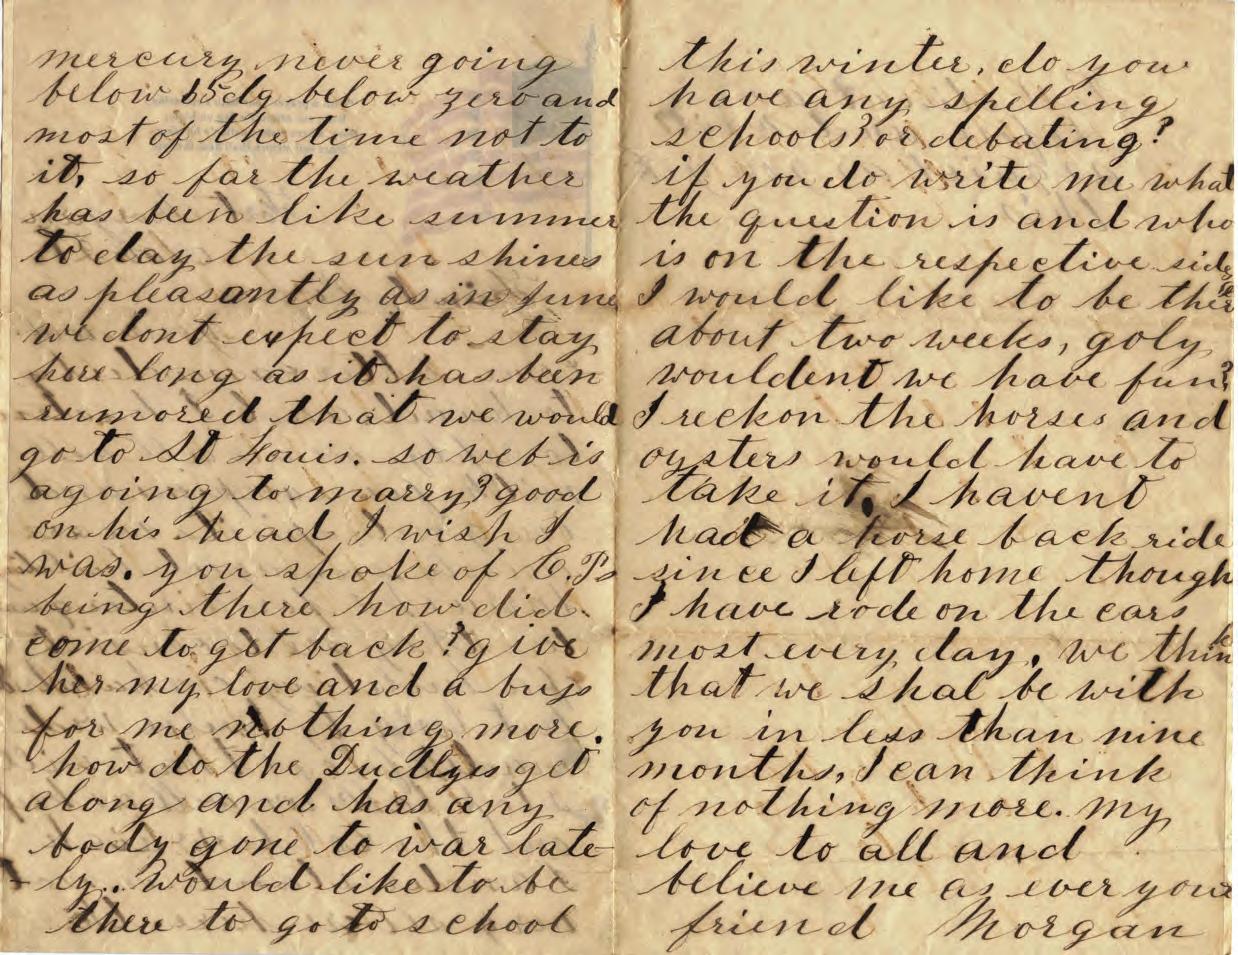 mercury never going
below 65dg below zero and
most of the time not to
it, so far the weather
has been like summer
to day the sun shines
as pleasantly as in june
we dont expect to stay
here long as it has been
rumored that we would
go to St Louis. so web is
agoing to marry? good
on his head I wish I
was. you spoke of C.Ps
being there how did
come to get back? give
her my love and a buss
for me nothing more.
how do the Dudlyes get
along and has any
body gone to war late-
ly.. would like to be
there to go to school
this winter, do you
have any spelling
schools? or debating?
if you do write me what
the question is and who
is on the respective sides
I would like to be there
about two weeks, goly
wouldent we have fun?
I reckon the horses and
oysters would have to
take it. I havent
had a horse back ride
since I left home though
I have rode on the cars
most every day. we think
that we shal be with
you in less than nine
months, I can think
of nothing more. my
love to all and
believe me as ever your
friend Morgan